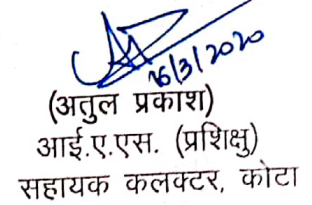 16/3/2020
(अतुल प्रकाश)
आई.ए.एस. (प्रशिक्षु)
सहायक कलक्टर, कोटा